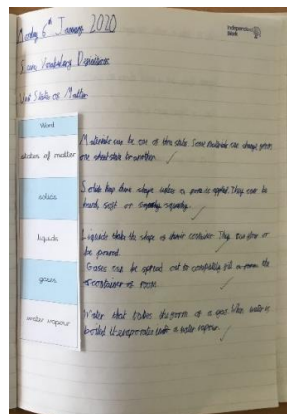 Monday 6th January 2020
Independent
Work
Science Vocabulary Definitions
Unit: States of Matter
Word
states of matter
Materials can be one of three states. Some materials can change from
one state to another.
solids
Solids keep their shape unless a force is applied. They can be
hard, soft or squishy.
liquids
Liquids take the shape of their container. They can flow or
be poured.
gases
Gases can be spread out to completely fill a room the
container or room.
water vapour
Water that takes the form of a gas. When water is
boiled it evaporates into a water vapour.